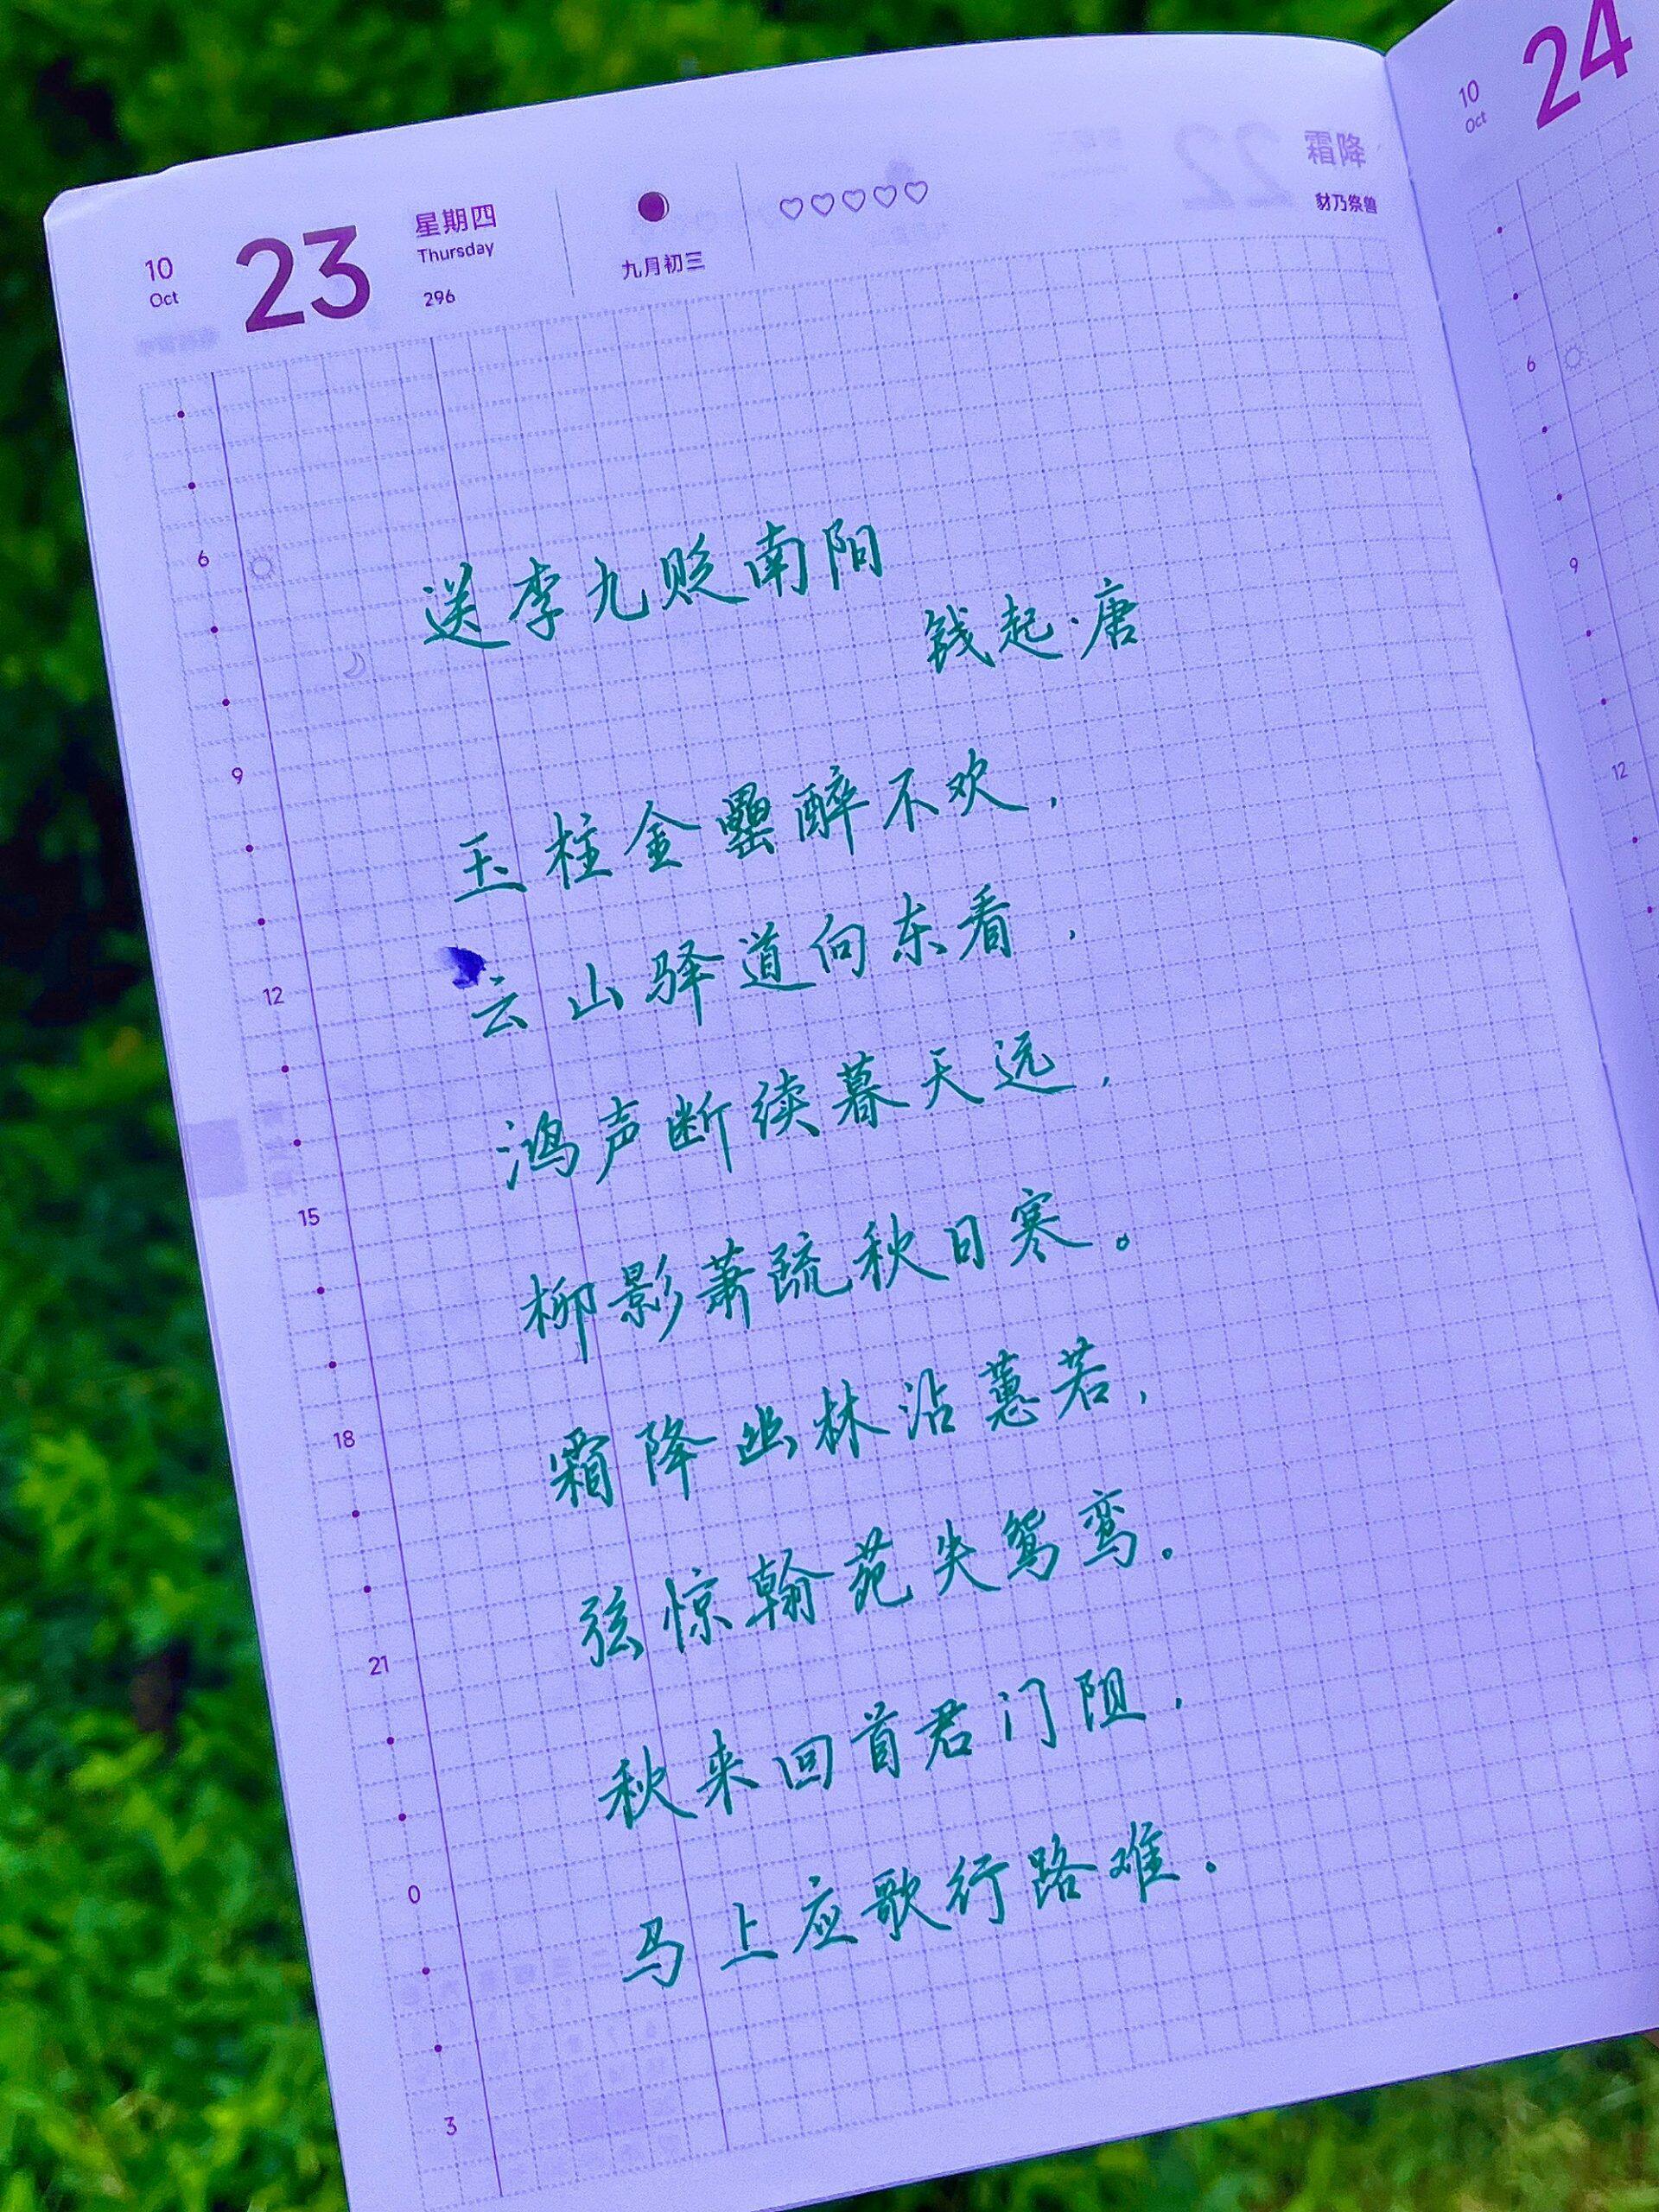 10
Oct
23
星期四
Thursday
296
九月初三
霜降
豺乃祭兽
送李九贬南阳
钱起·唐
玉柱金罍醉不欢,
云山驿道向东看,
鸿声断续暮天远,
柳影萧疏秋日寒。
霜降幽林沾蕙若,
弦惊翰苑失鸳鸾。
秋来回首君门阻,
马上应歌行路难。
6
9
12
15
18
21
0
3
10
Oct
24
6
9
12